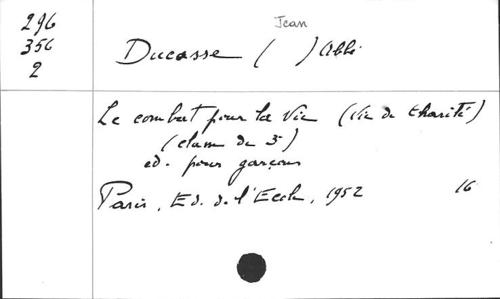 Jean
296
356
2
Ducasse ( ) Abbé
Le combat pour la Vie (Vie de Charité)
(classe de 5e)
ed. pour garçons
Paris, Ed. de l'Ecole, 1952 16